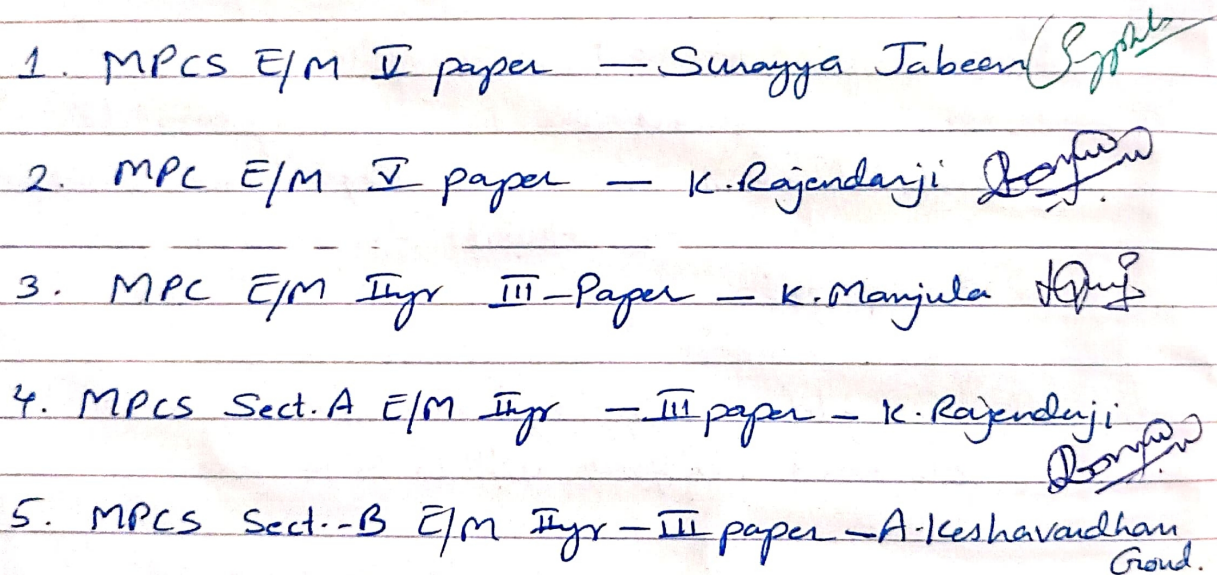 1. MPCS E/M V paper — Surayya Jabeen
2. MPC E/M V paper — K. Rajendarji
3. MPC E/M IIyr III-Paper — K. Manjula
4. MPCS Sect. A E/M IIyr — III paper — K. Rajenderji
5. MPCS Sect.-B E/M IIyr — III paper — A. Keshavardhan
Goud.